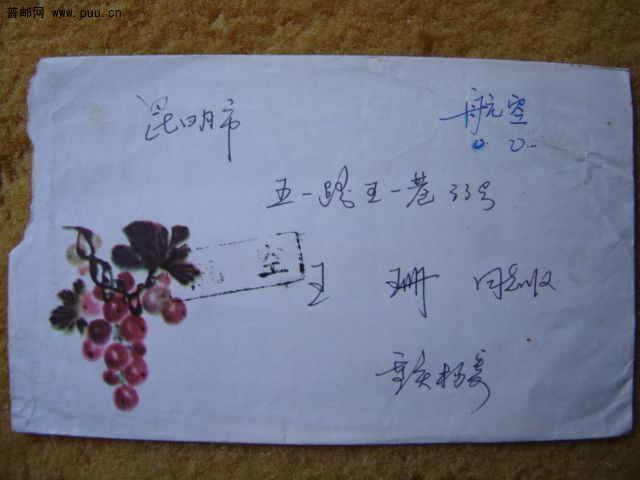 普邮网 www.puu.cn
昆明市
航空
五一路五一巷33号
空
王 珊 同志收